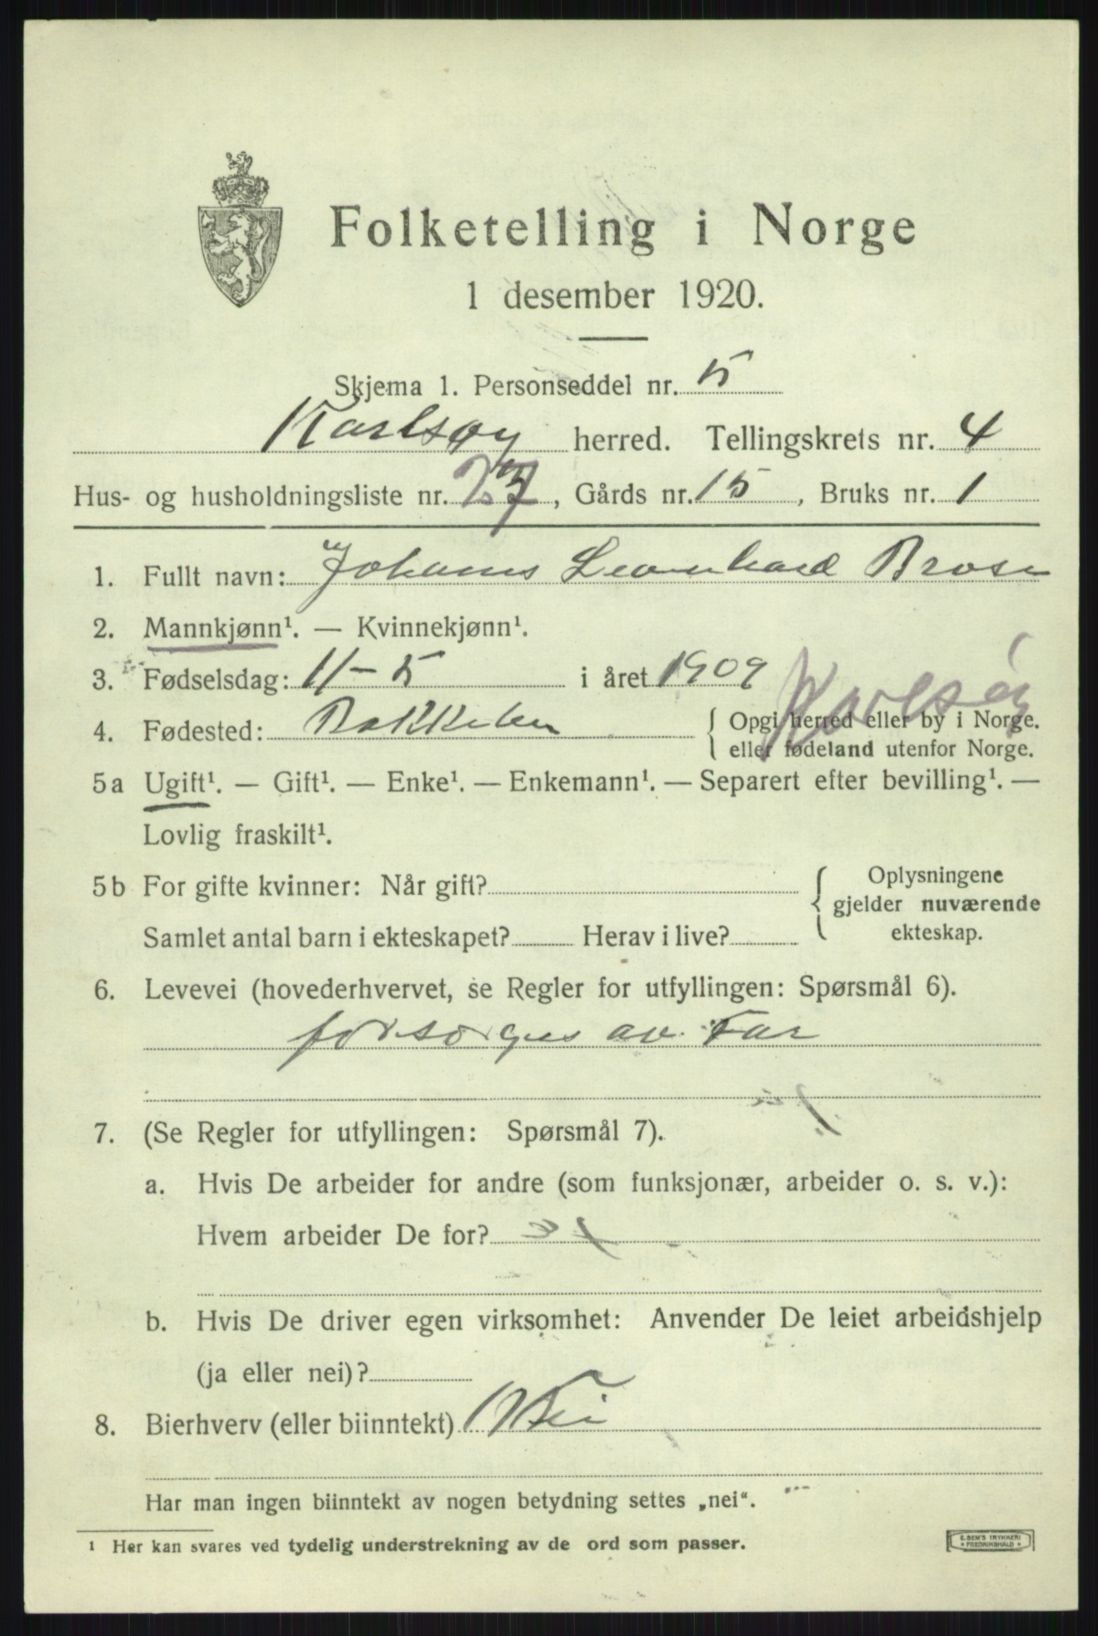 Folketelling i Norge
1 desember 1920.
Skjema 1. Personseddel nr. 5
Karlsøy herred. Tellingskrets nr. 4
Hus- og husholdningsliste nr. , Gårds nr. 15, Bruks nr. 1
1. Fullt navn: Johannes Leonhard
2. Mannkjønn¹. — Kvinnekjønn¹.
3. Fødselsdag: 11-5 i året 1909
Karlsøy
4. Fødested: { Opgi herred eller by i Norge.
eller fødeland utenfor Norge.
5a Ugift¹. — Gift¹. — Enke¹. — Enkemann¹. — Separert efter bevilling¹. —
Lovlig fraskilt¹.
5b For gifte kvinner: Når gift? { Oplysningene
gjelder nuværende
Samlet antal barn i ekteskapet? Herav i live? ekteskap.
6. Levevei (hovederhvervet, se Regler for utfyllingen: Spørsmål 6).
forsørges av Far
7. (Se Regler for utfyllingen: Spørsmål 7).
a. Hvis De arbeider for andre (som funksjonær, arbeider o. s. v.):
Hvem arbeider De for?
b. Hvis De driver egen virksomhet: Anvender De leiet arbeidshjelp
(ja eller nei)?
8. Bierhverv (eller biinntekt) Nei
Har man ingen biinntekt av nogen betydning settes „nei“.
¹ Her kan svares ved tydelig understrekning av de ord som passer.
E. SEM'S TRYKKERI
FREDRIKSHALD